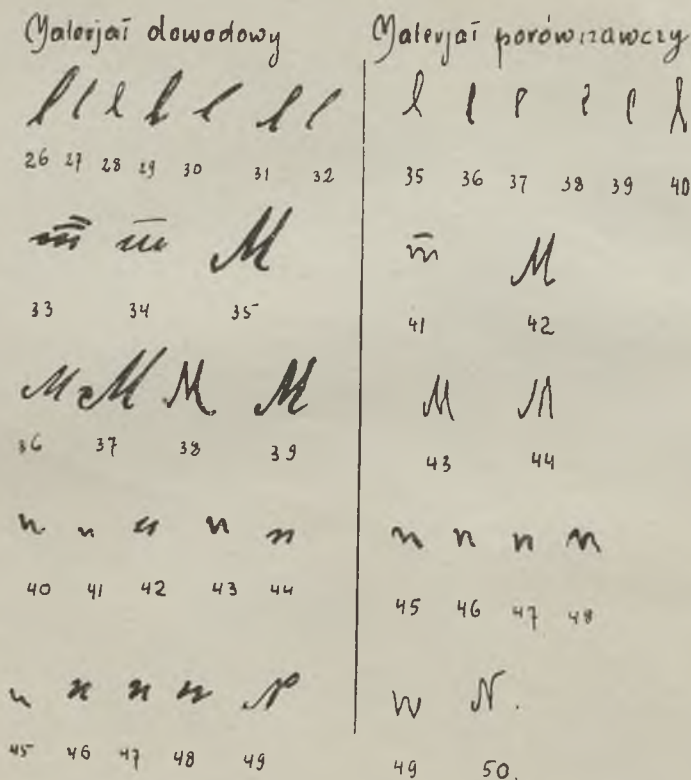 Materjał dowodowy
l l l l l l l
26 27 28 29 30 31 32
m m M
33 34 35
M M M M
36 37 38 39
n n n n n
40 41 42 43 44
n n n n N
45 46 47 48 49
Materjał porównawczy
l l l l l l
35 36 37 38 39 40
m M
41 42
M M
43 44
n n n n
45 46 47 48
N.
49 50.